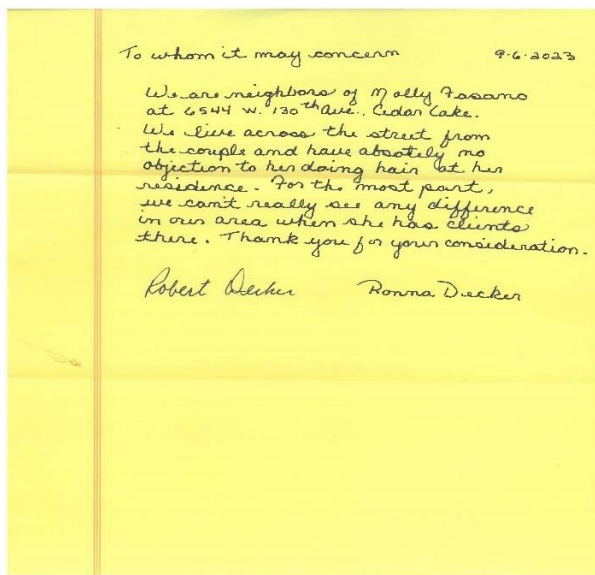 To whom it may concern 9-6-2023
We are neighbors of Molly Fasano
at 6544 W. 130th Ave., Cedar Lake.
We live across the street from
the couple and have absotely no
objection to her doing hair at her
residence. For the most part,
we can't really see any difference
in our area when she has clients
there. Thank you for your consideration.
Robert Decker Ronna Decker